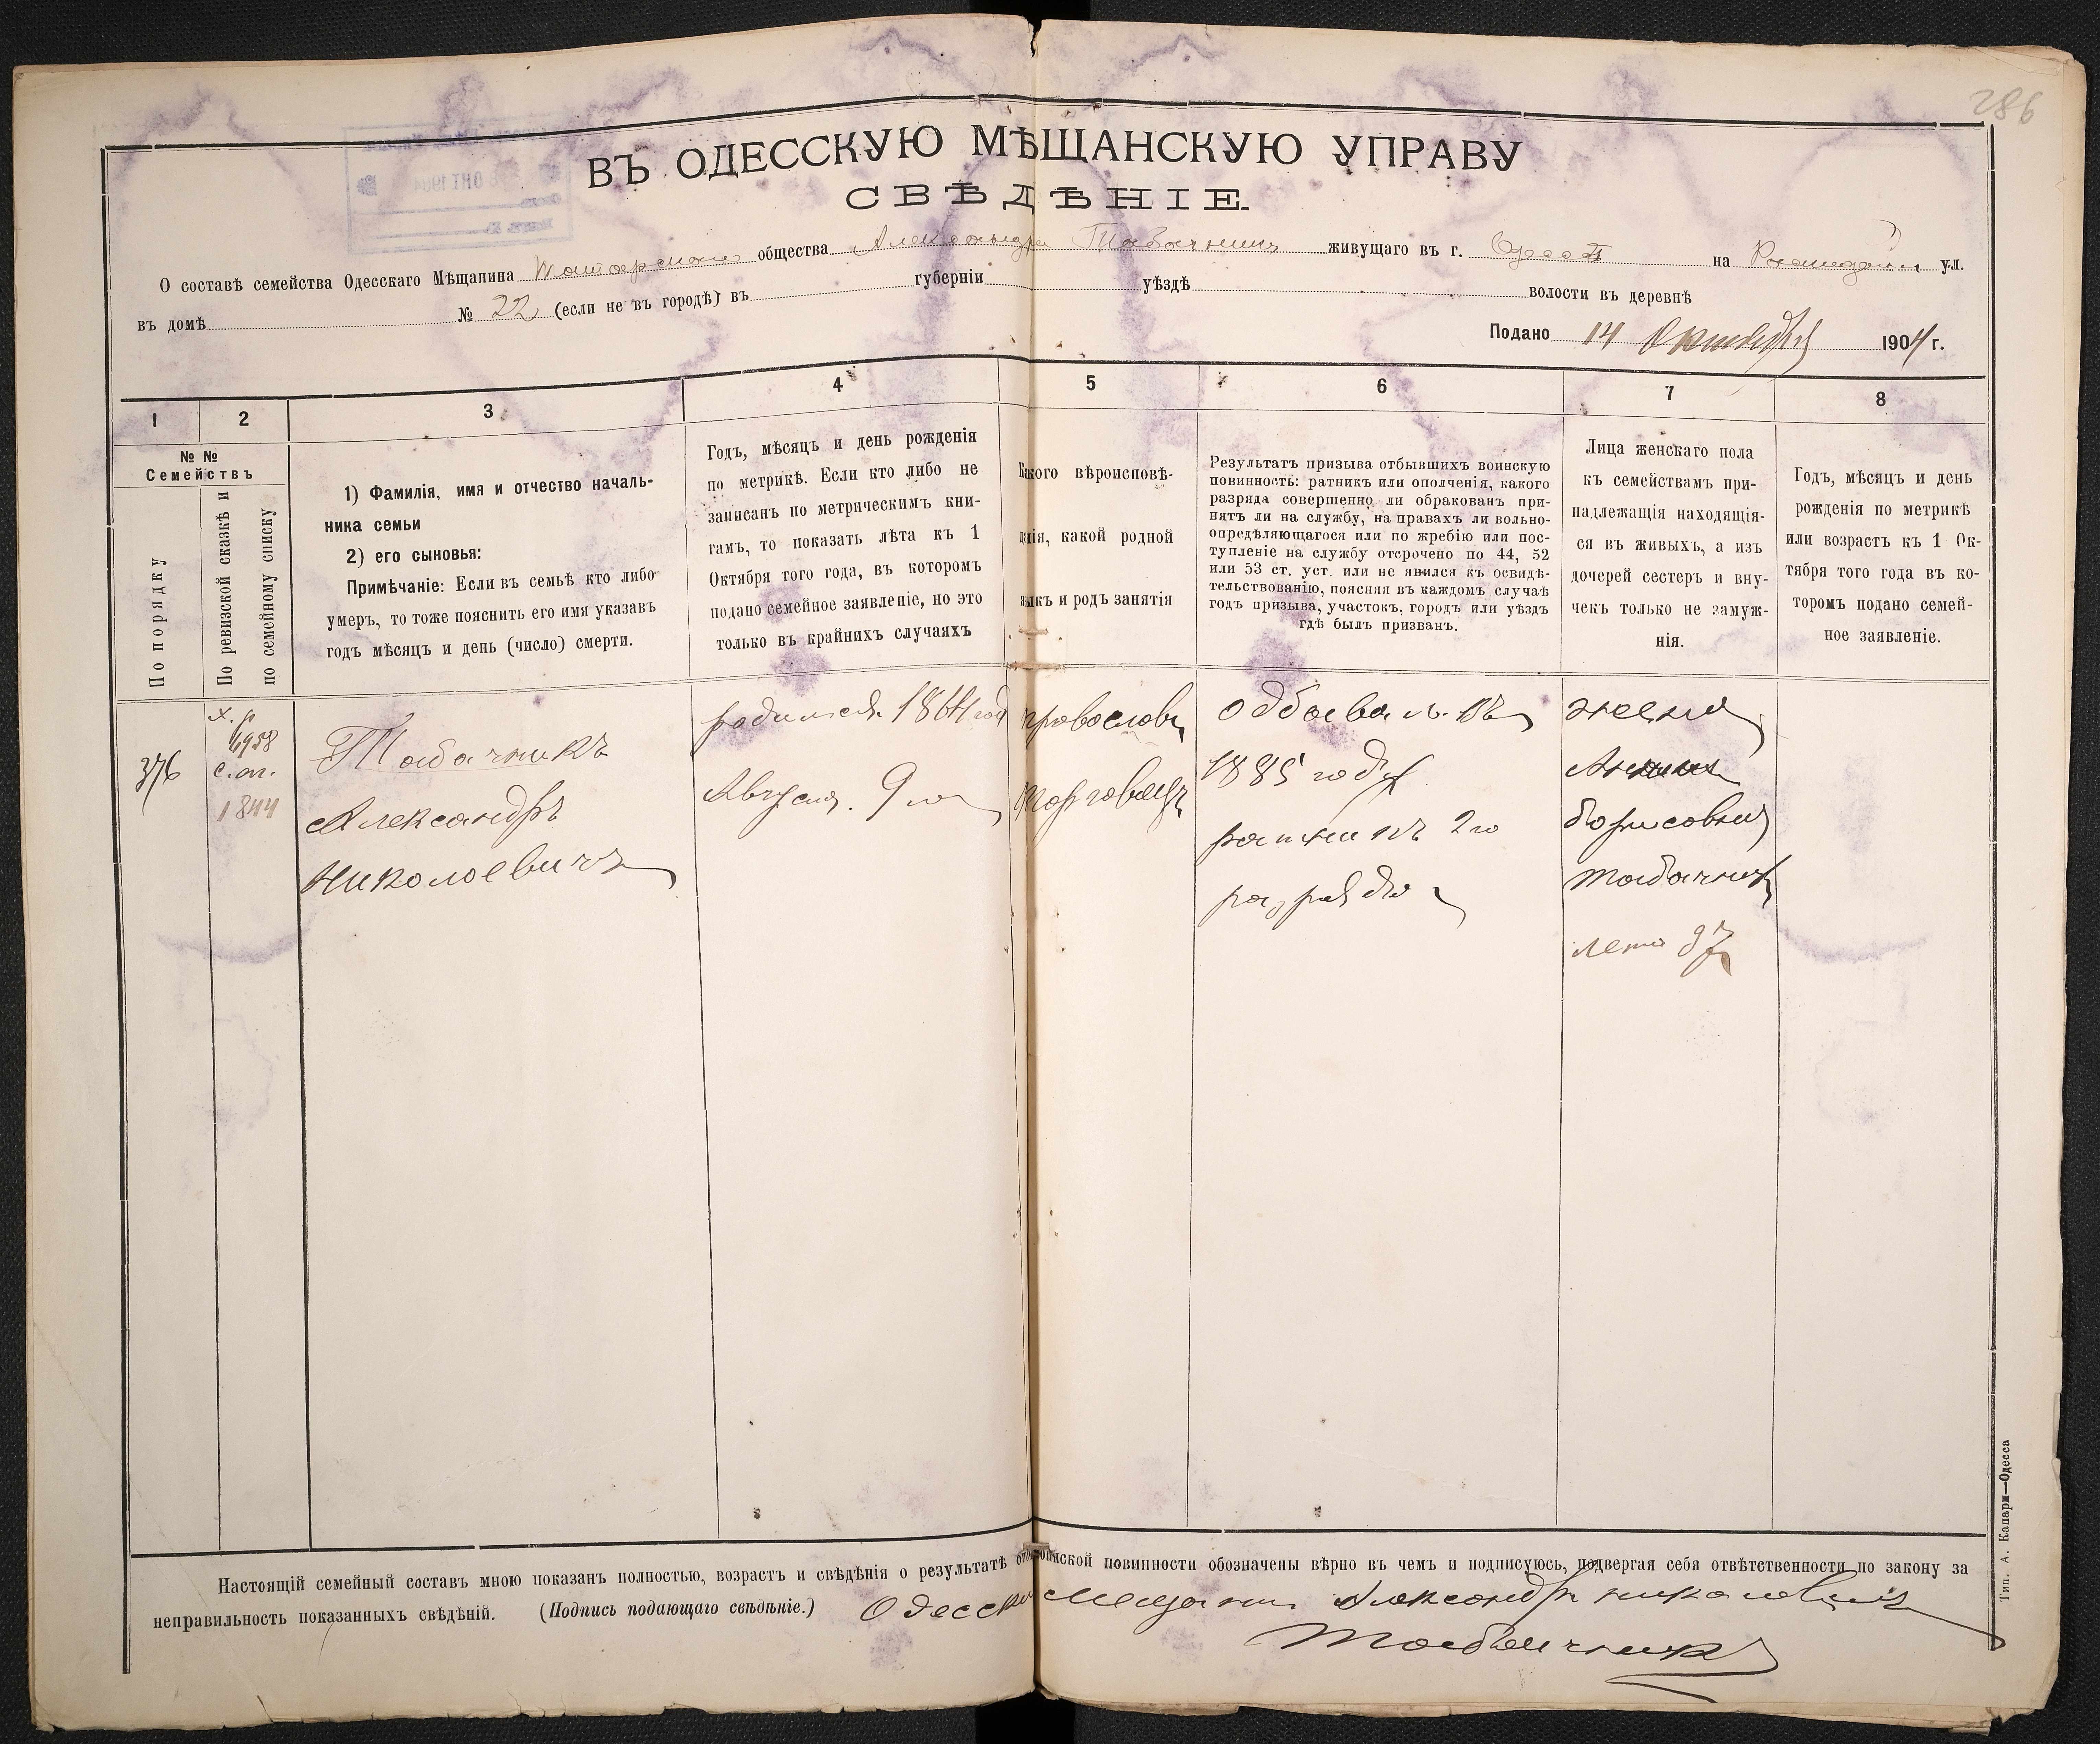 286
ВЪ ОДЕССКУЮ МѢЩАНСКУЮ УПРАВУ
СВѢДѢНІЕ.
О составѣ семейства Одесскаго Мѣщанина общества Александра Табачника живущаго въ г. Одессѣ на ул.
въ домѣ № 22 (если не въ городѣ) въ губерніи уѣздѣ волости въ деревнѣ
Подано 14 Октября 1904 г.
1 2 3 4 5 6 7 8
№ №
Семействъ
По порядку
По ревизской сказкѣ и
по семейному списку
1) Фамилія, имя и отчество началь-
ника семьи
2) его сыновья:
Примѣчаніе: Если въ семьѣ кто либо
умеръ, то тоже пояснить его имя указавъ
годъ мѣсяцъ и день (число) смерти.
Годъ, мѣсяцъ и день рожденія
по метрикѣ. Если кто либо не
записанъ по метрическимъ кни-
гамъ, то показать лѣта къ 1
Октября того года, въ которомъ
подано семейное заявленіе, но это
только въ крайнихъ случаяхъ
Какого вѣроисповѣ-
данія, какой родной
языкъ и родъ занятія
Результатъ призыва отбывшихъ воинскую
повинность: ратникъ или ополченія, какого
разряда совершенно ли обракованъ при-
нятъ ли на службу, на правахъ ли вольно-
опредѣляющагося или по жребію или пос-
тупленіе на службу отсрочено по 44, 52
или 53 ст. уст. или не явился къ освидѣ-
тельствованію, поясняя въ каждомъ случаѣ
годъ призыва, участокъ, городъ или уѣздъ
гдѣ былъ призванъ.
Лица женскаго пола
къ семействамъ при-
надлежащія находящія-
ся въ живыхъ, а изъ
дочерей сестеръ и вну-
чекъ только не замуж-
нія.
Годъ, мѣсяцъ и день
рожденія по метрикѣ
или возрастъ къ 1 Ок-
тября того года въ ко-
торомъ подано семей-
ное заявленіе.
376
1844
Табачникъ
Александръ
Николоевичъ
родился 1864 год
Августа 9 го
православ
торговецъ
одбывалъ въ
1885 году
ратникъ 2 го
разряда
жена
Анна
Борисовна
Табачник
лета 37
Настоящій семейный составъ мною показанъ полностью, возрастъ и свѣдѣнія о результатѣ воинской повинности обозначены вѣрно въ чемъ и подписуюсь, подвергая себя отвѣтственности по закону за
неправильность показанныхъ свѣдѣній. (Подпись подающаго свѣдѣніе.) Одесски Мещанин Александръ николаевичъ
Табачникъ
Тип. А. Капари—Одесса